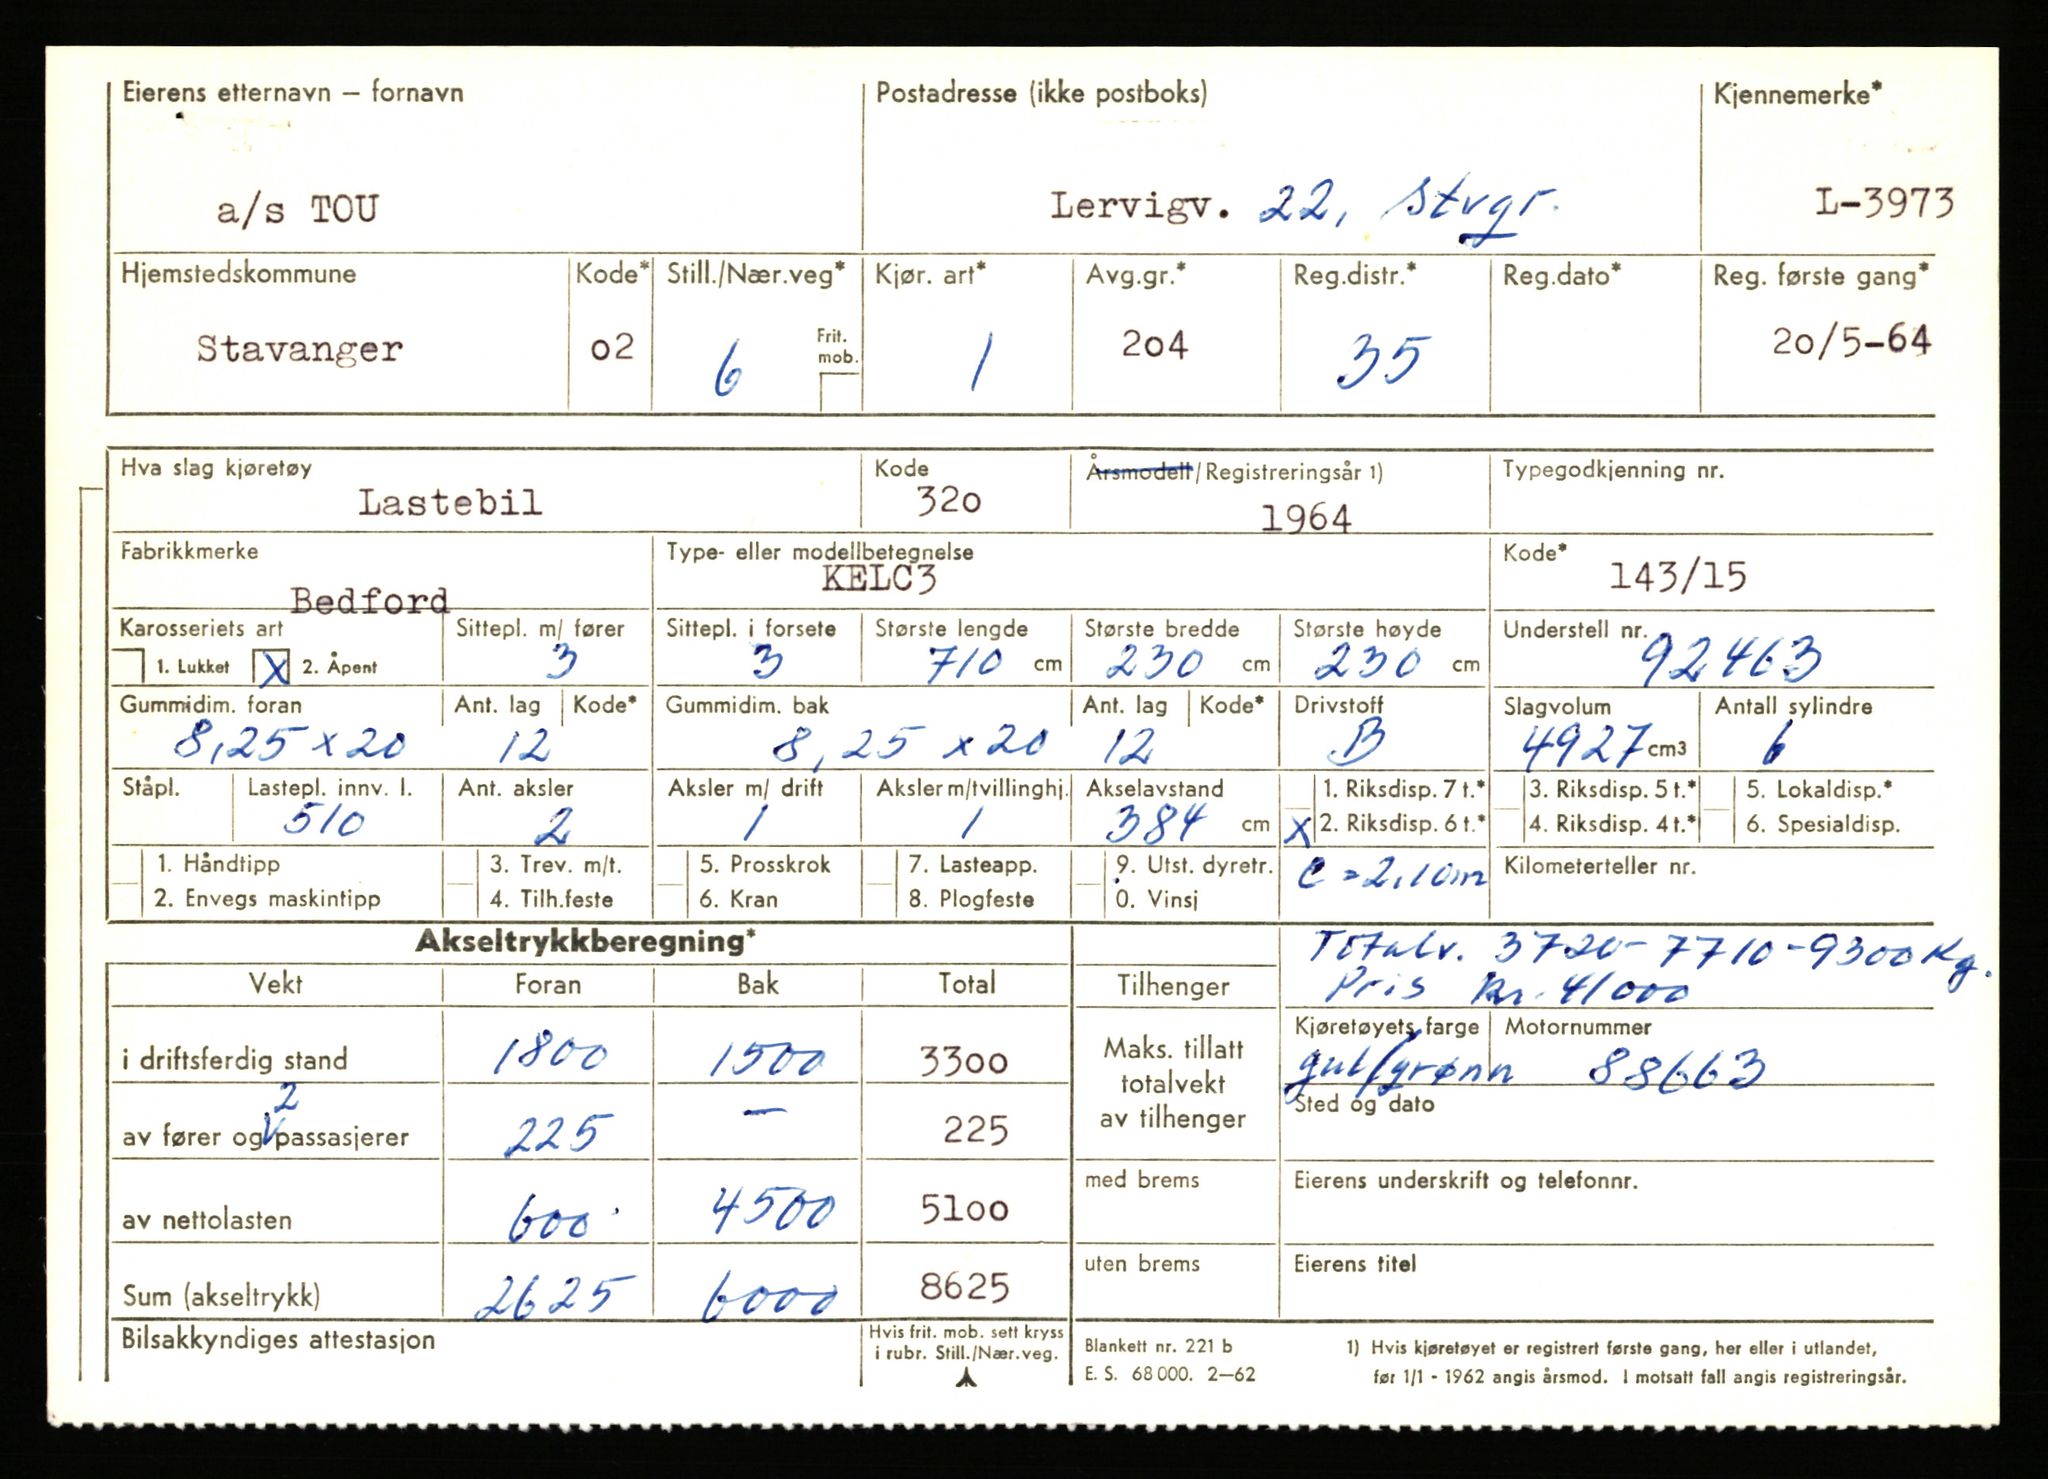 Eierens etternavn – fornavn Postadresse (ikke postboks) Kjennemerke*
a/s TOU Lervigv. 22, Stvgr. L-3973
Hjemstedskommune Kode* Still./Nær.veg* Kjør. art* Avg.gr.* Reg.distr.* Reg.dato* Reg. første gang*
Stavanger 02 6 Frit. mob. 1 204 35 20/5-64
Hva slag kjøretøy Kode Årsmodell/Registreringsår 1) Typegodkjenning nr.
Lastebil 320 1964
Fabrikkmerke Type- eller modellbetegnelse Kode*
Bedford KELC3 143/15
Karosseriets art Sittepl. m/ fører Sittepl. i forsete Største lengde Største bredde Største høyde Understell nr.
1. Lukket X 2. Åpent 3 3 710 cm 230 cm 230 cm 92463
Gummidim. foran Ant. lag Kode* Gummidim. bak Ant. lag Kode* Drivstoff Slagvolum Antall sylindre
8,25 x 20 12 8,25 x 20 12 B 4927 cm3 6
Ståpl. Lastepl. innv. l. Ant. aksler Aksler m/ drift Aksler m/tvillinghj. Akselavstand 1. Riksdisp. 7 t.* 3. Riksdisp. 5 t.* 5. Lokaldisp.*
510 2 1 1 384 cm X 2. Riksdisp. 6 t.* 4. Riksdisp. 4 t.* 6. Spesialdisp.
1. Håndtipp 3. Trev. m/t. 5. Prosskrok 7. Lasteapp. 9. Utst. dyretr. C = 2,10m Kilometerteller nr.
2. Envegs maskintipp 4. Tilh.feste 6. Kran 8. Plogfeste 0. Vinsj
Akseltrykkberegning* Totalv. 3720-7710-9300 Kg.
Vekt Foran Bak Total Tilhenger Pris kr. 41000
Kjøretøyets farge Motornummer
i driftsferdig stand 1800 1500 3300 Maks. tillatt totalvekt av tilhenger gul/grønn 88663
Sted og dato
av fører og 2 passasjerer 225 — 225
med brems Eierens underskrift og telefonnr.
av nettolasten 600 4500 5100
uten brems Eierens titel
Sum (akseltrykk) 2625 6000 8625
Bilsakkyndiges attestasjon Hvis frit. mob. sett kryss Blankett nr. 221 b 1) Hvis kjøretøyet er registrert første gang, her eller i utlandet,
i rubr. Still./Nær.veg. E. S. 68 000. 2–62 før 1/1 - 1962 angis årsmod. I motsatt fall angis registreringsår.